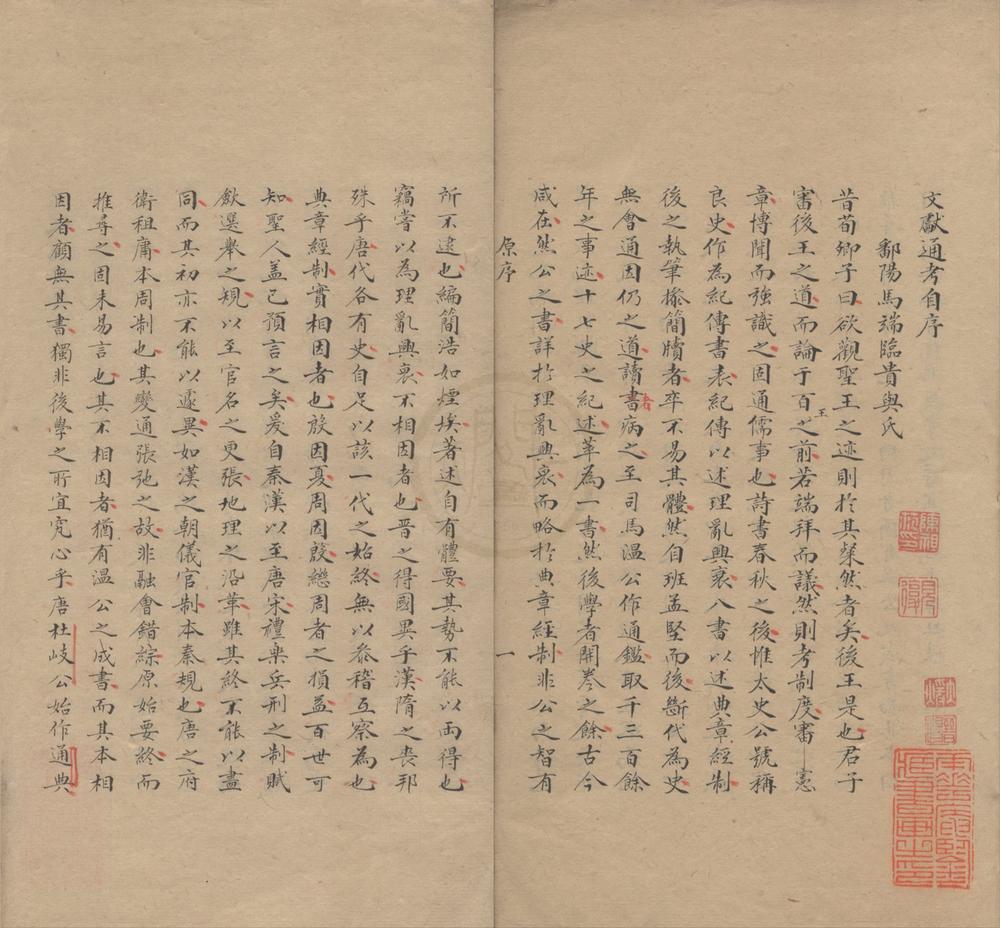 文獻通考自序
鄱陽馬端臨貴與氏
昔荀卿子曰欲觀聖王之迹則於其粲然者矣後王是也君子
審後王之道而論于百王之前若端拜而議然則考制度審憲
章博聞而強識之固通儒事也詩書春秋之後惟太史公號稱
良史作為紀傳書表紀傳以述理亂興衰八書以述典章經制
後之執筆操簡牘者卒不易其體然自班孟堅而後斷代為史
無會通因仍之道讀書者病之至司馬溫公作通鑑取千三百餘
年之事迹十七史之紀述萃為一書然後學者開卷之餘古今
咸在然公之書詳於理亂興衰而略於典章經制非公之智有
原序 一
所不逮也編簡浩如煙埃著述自有體要其勢不能以両得也
竊嘗以為理亂興衰不相因者也晋之得國異乎漢隋之丧邦
殊乎唐代各有史自足以該一代之始終無以叅稽互察為也
典章經制實相因者也殷因夏周因殷繼周者之損益百世可
知聖人盖已預言之矣爰自秦漢以至唐宋禮樂兵刑之制賦
歛選舉之規以至官名之更張地理之沿革雖其終不能以盡
同而其初亦不能以遽異如漢之朝儀官制本秦規也唐之府
衛租庸本周制也其變通張弛之故非融會錯綜原始要終而
推尋之固未易言也其不相因者猶有溫公之成書而其本相
因者顧無其書獨非後學之所宜究心乎唐杜岐公始作通典